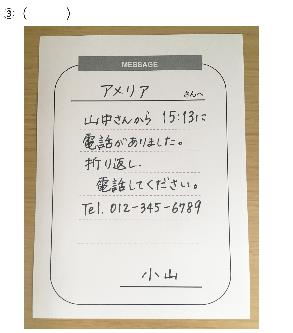 ③:（　　　）
MESSAGE
アメリア さんへ
山中さんから 15:13に
電話がありました。
折り返し、
電話してください。
Tel. 012-345-6789
小山